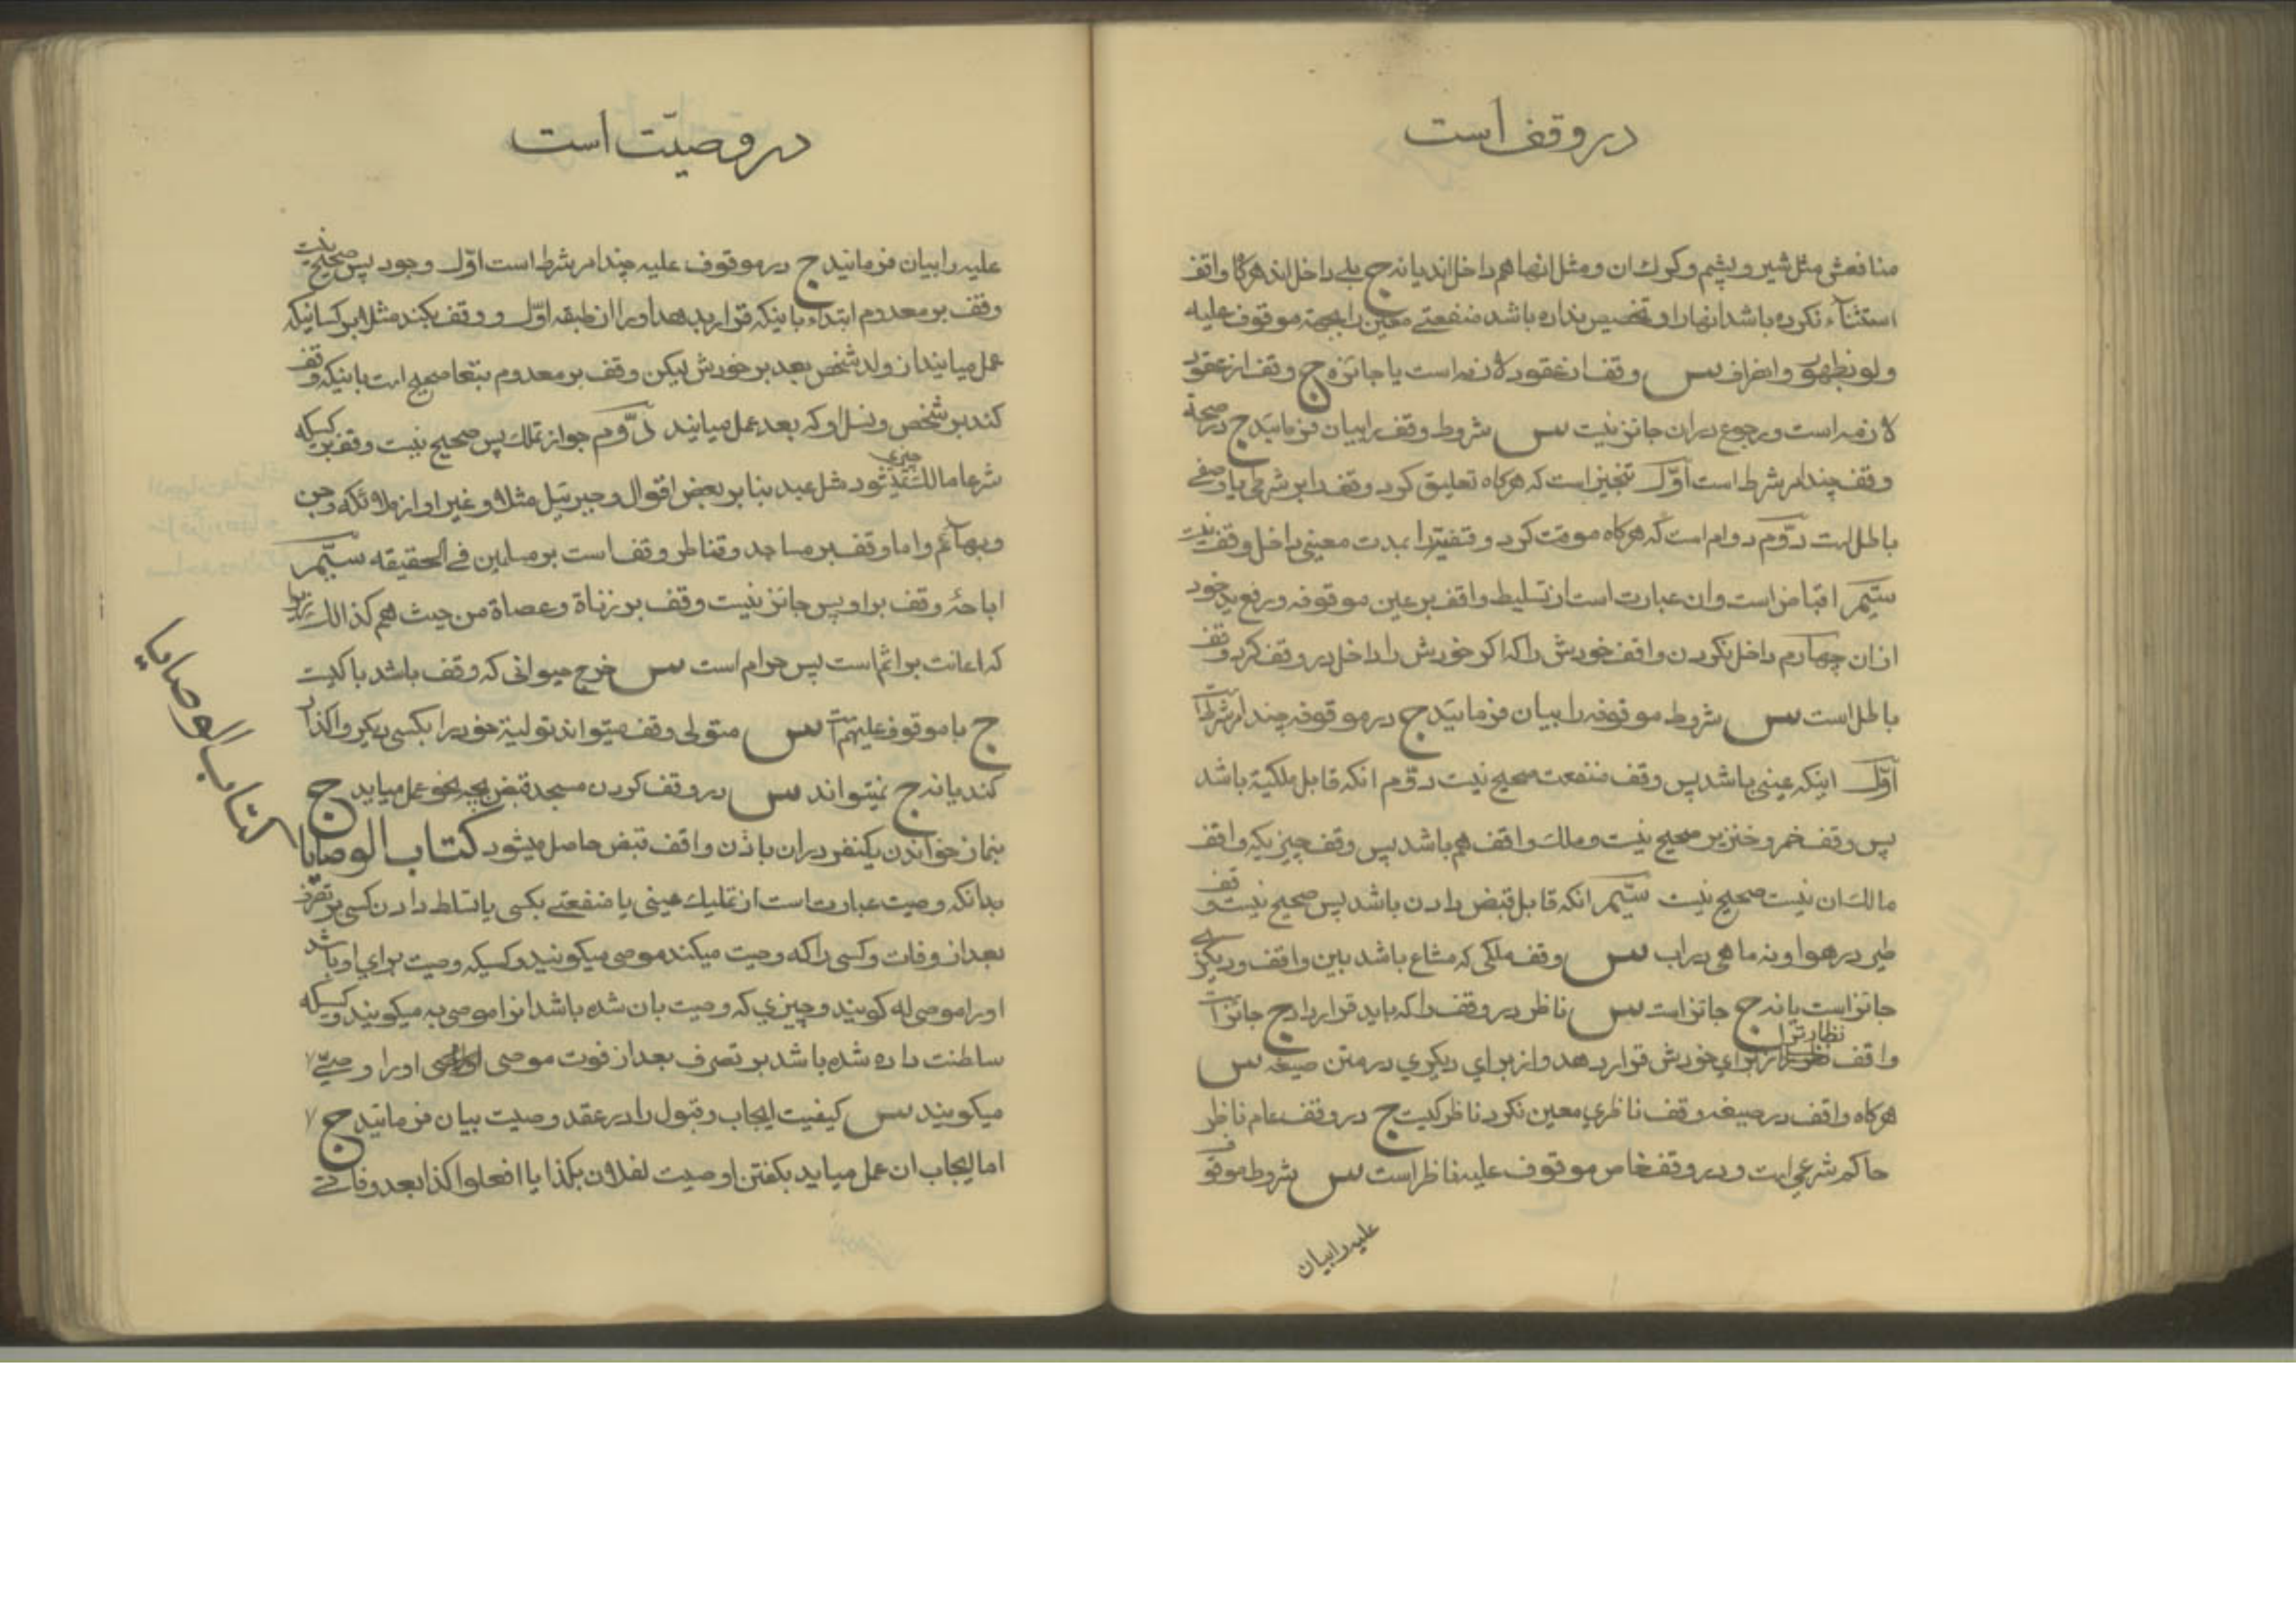 در وقف است
منافعش مثل شیر و پشم و کرک ان و مثل انها هم داخل اند یا نه ج بلی داخل اند هرگاه واقف
استثنآء نکرده باشد انها را و تخصیص نداده باشد منفعتی معین را بجهة موقوف علیه
ولو بظهور وانصراف س وقف از عقود لازمه است یا جائزه ج وقف از عقود
لازمه است و رجوع در ان جائز نیست س شروط وقف را بیان فرمائید ج در صحة
وقف چند امر شرط است اوّل تنجیز است که هرگاه تعلیق کرد وقف را بر شرطی یا وصفی
باطل است دوّم دوام است که هرگاه موقت کرد وقفیترا بمدت معینی داخل وقف نیست
سیّم اقباض است و ان عبارت است از تسلیط واقف بر عین موقوفه و رفع ید خود
از ان چهارم داخل نکردن واقف خودش را که اگر خودش را داخل در وقف کرد وقف
باطل است س شروط موقوفه را بیان فرمائید ج در موقوفه چند امر شرط است
اوّل اینکه عینی باشد پس وقف منفعت صحیح نیست دوّم انکه قابل ملکیة باشد
پس وقف خمر و خنزیر صحیح نیست و ملک واقف هم باشد پس وقف چیزیکه واقف
مالک ان نیست صحیح نیست سیّم انکه قابل قبض دادن باشد پس صحیح نیست وقف
طیر در هوا و نه ماهی در اب س وقف ملکی که مشاع باشد بین واقف و دیگری
جائز است یا نه ج جائز است س ناظر در وقف را که باید قرار داد ج جائز است
نظارترا
واقف از برای خودش قرار دهد و از برای دیگری در متن صیغه س
هرگاه واقف در صیغه وقف ناظری معین نکرد ناظر کیست ج در وقف عام ناظر
حاکم شرعی است و در وقف خاص موقوف علیه ناظر است س شروط موقوف
علیه را بیان
در وصیّت است
علیه را بیان فرمائید ج در موقوف علیه چند امر شرط است اوّل وجود پس صحیح نیست
وقف بر معدوم ابتداء باینکه قرار بدهد او را از طبقه اوّل و وقف بکند مثلا بر کسانیکه
عمل میایند از ولد شخص بعد بر خودش لیکن وقف بر معدوم بتبعا صحیح است باینکه وقف
کند بر شخص و نسل او که بعد عمل میایند دوّم جواز تملک پس صحیح نیست وقف بر کسیکه
شرعا مالک چیزی نمیشود مثل عبد بنا بر بعض اقوال و جبرئیل مثلا و غیر او از ملائکه و جن
و بهآئم و اما وقف بر مساجد و قناطر وقف است بر مسلمین فی الحقیقه سیّم
اباحهٔ وقف بر او پس جائز نیست وقف بر زناة و عصاة من حیث هم کذالک زیرا
که اعانت بر اثم است پس حرام است س خرج حیوانی که وقف باشد با کیست
ج با موقوف علیهم است س متولی وقف میتواند تولیة خود را بکسی دیگر واگذار
کند یا نه ج نمیتواند س در وقف کردن مسجد قبض بچه نحو عمل میاید ج
بنماز خواندن یکنفر در ان باذن واقف قبض حاصل میشود کتاب الوصایا
بدانکه وصیت عبارت است از تملیک عینی یا منفعتی بکسی یا تسلط دادن کسی بر تصرف
بعد از وفات و کسی را که وصیت میکند موصی میگویند و کسیکه وصیت برای او باشد
او را موصی له گویند و چیزی که وصیت بان شده باشد انرا موصی به میگویند و کسیکه
سلطنت داده شده باشد بر تصرف بعد از فوت موصی او را وصیّ
میگویند س کیفیت ایجاب و قبول را در عقد وصیت بیان فرمائید ج
اما ایجاب ان عمل میاید بگفتن اوصیت لفلان بکذا یا افعلوا کذا بعد وفاتی
کتاب الوصایا